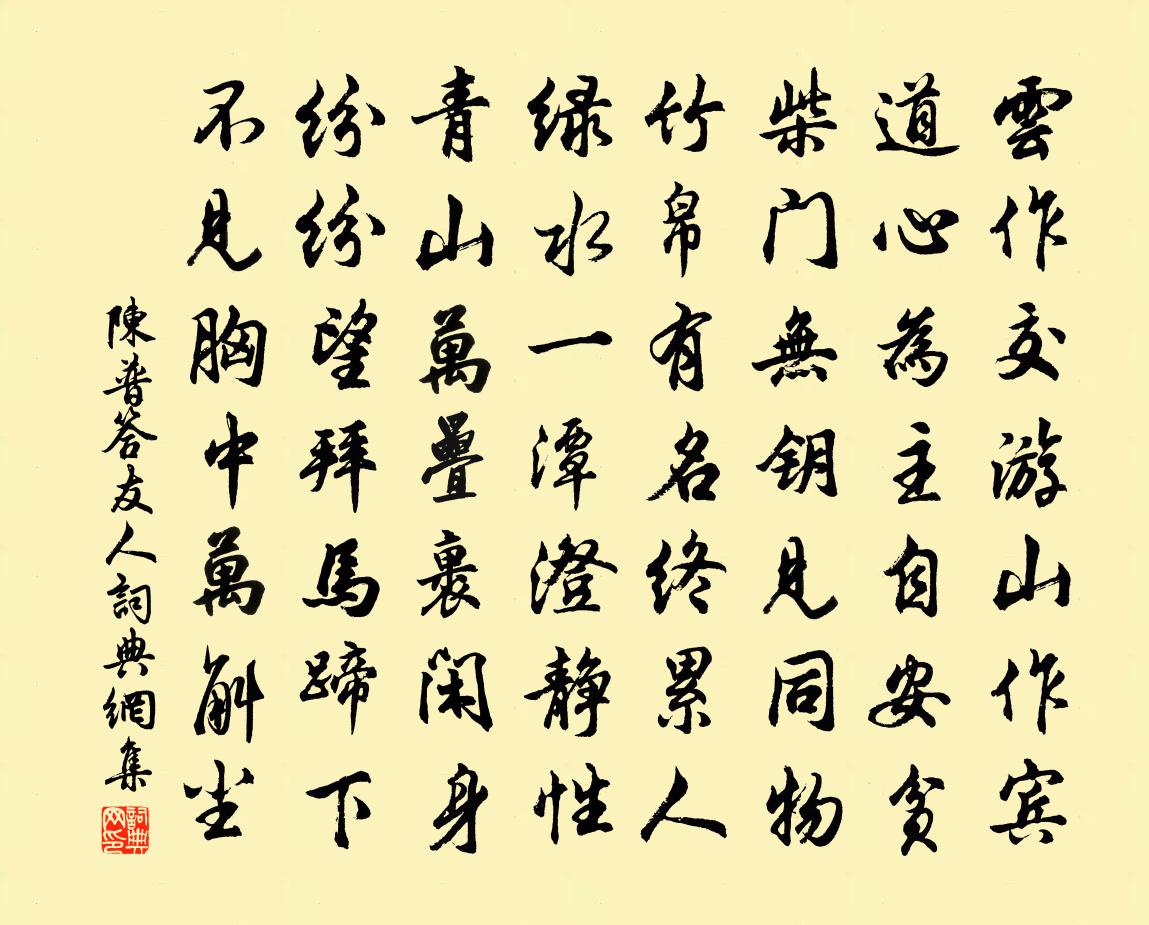 雲作交游山作宾
道心為主自安贫
柴门無钥見同物
竹帛有名终累人
绿水一潭澄静性
青山萬疊裹闲身
纷纷望拜馬蹄下
不見胸中萬斛尘
陳普答友人詞典網集
詞典网印